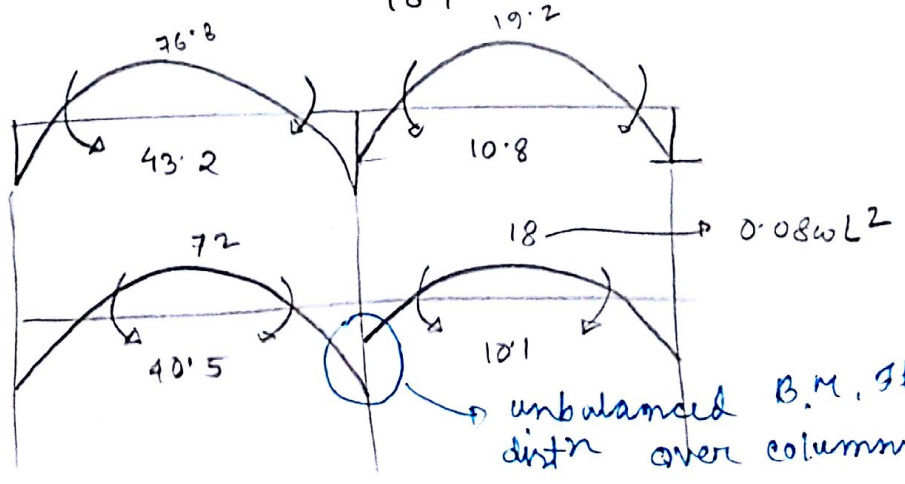 76.8
19.2
43.2
10.8
72
18 → 0.08wL²
40.5
10.1
unbalanced B.M.
distn over column